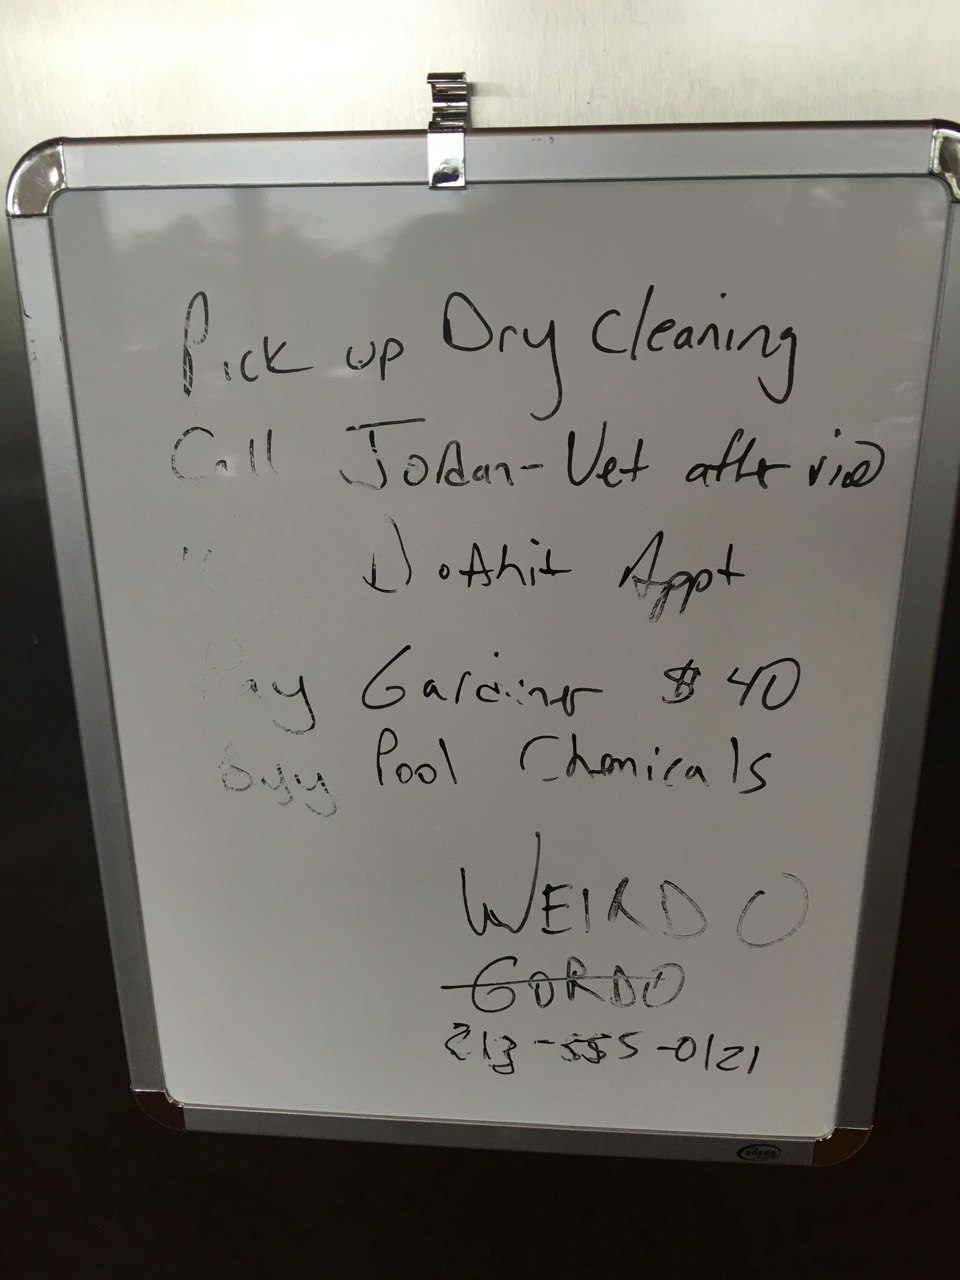 Pick up Dry Cleaning
Call Jordan-Vet after
Appt
Pay Gardiner $40
Buy Pool Chemicals
WEIRDO
GORDO
213-555-0121
BOARD